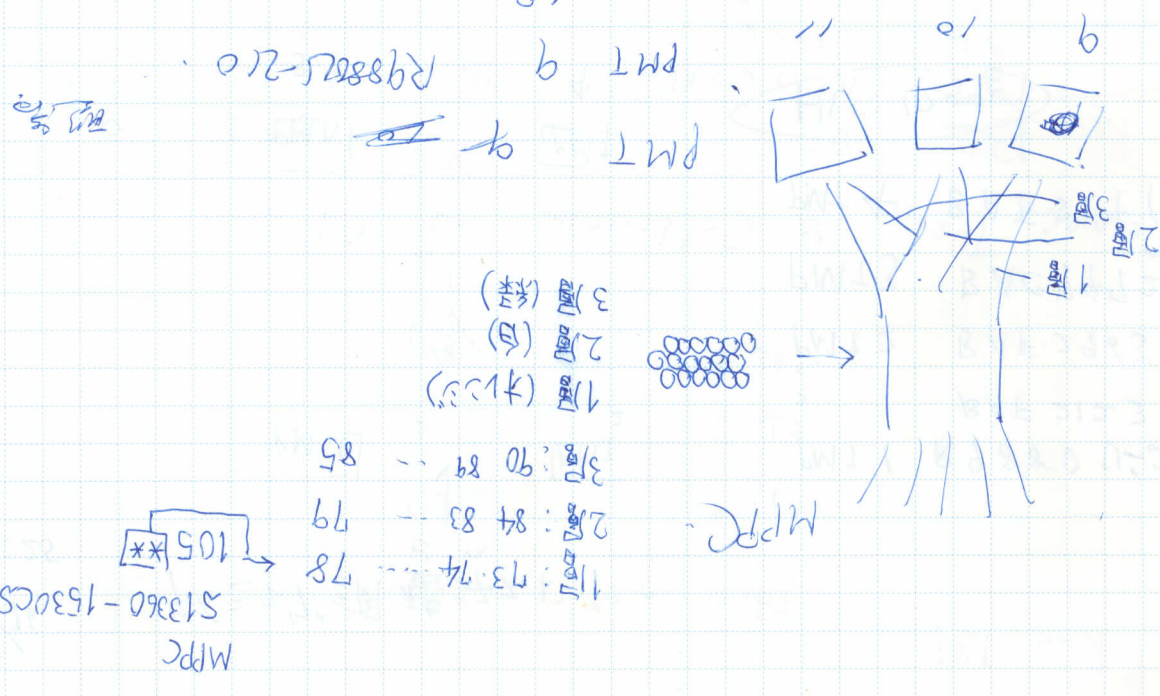 MPPC
S13360-1530CS
105**
1層: 73・74 ...... 78
2層: 84 83 ... 79
3層: 90 89 ... 85
MPPC
1層 (オレンジ)
2層 (白)
3層 (緑)
1層
2層
3層
PMT 9
PMT 9 R9880U-210
9 10 11